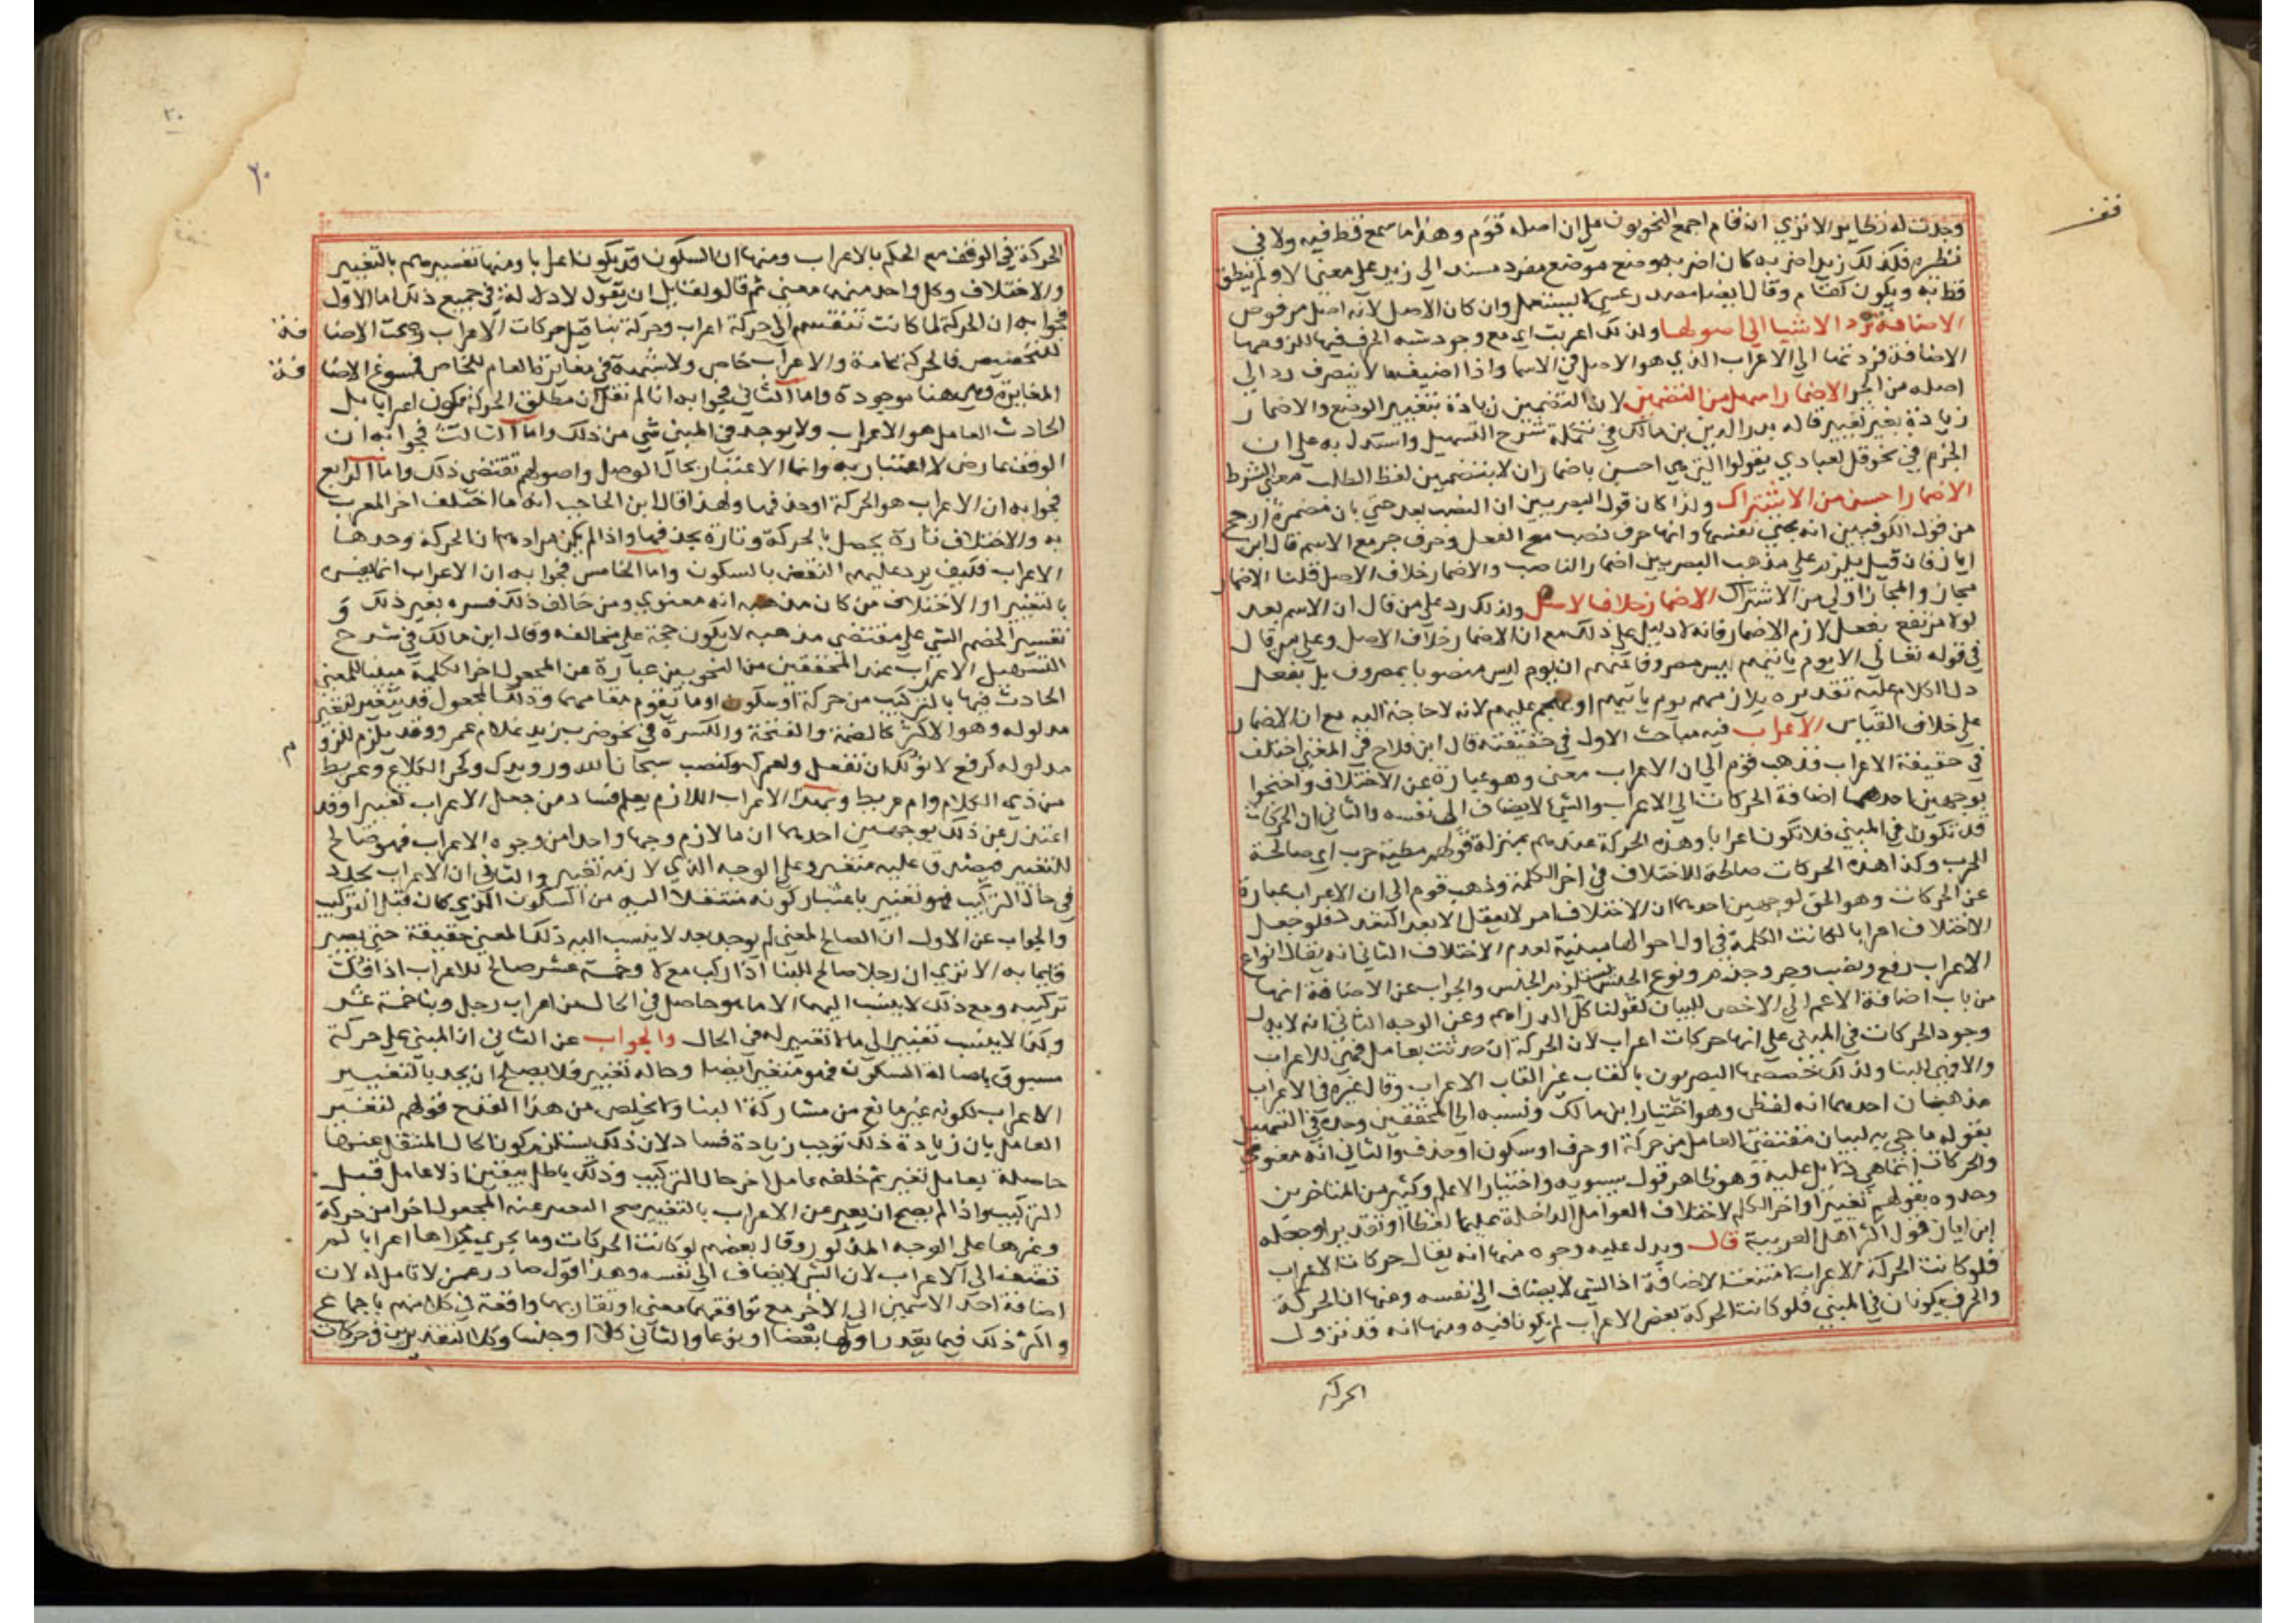 وقف
وجدت له نظايرا الا تري ان قام اجمع النحويون علي ان اصله قوم وهذا ما سمع قط فيه ولا في
نظيره فكذلك زيد اضربه كان اضربه وضع موضع مفرد مسند الي زيد علي معني لا ولم ينطق
قط به ويكون كقام وقال ايضا مصدر عسي لا يستعمل وان كان الاصل لانه اصل مرفوض
الاضافة ترد الاشيا الي اصولها ولذلك اعربت اي مع وجود شبه الحرف فيها للزومها
الاضافة فردتها الي الاعراب الذي هو الاصل في الاسما واذا اضيف ما لا ينصرف رد الي
اصله من الجر الاضمار اسهل من التضمين لان التضمين زيادة بتغيير الوضع والاضمار
زيادة بغير تغيير قاله بدر الدين بن مالك في تكملة شرح التسهيل واستدل به علي ان
الجزم في نحو قل لعبادي يقولوا التي هي احسن باضمار ان لا بتضمين لفظ الطلب معني الشرط
الاضمار احسن من الاشتراك ولذا كان قول البصريين ان النصب بعد حتي بان مضمرة ارجح
من قول الكوفيين انه بحتي نفسها وانها حرف نصب مع الفعل وحرف جر مع الاسم قال ابن
اياز فان قيل يلزم علي مذهب البصريين اضمار الناصب والاضمار خلاف الاصل قلنا الاضمار
مجاز والمجاز اولي من الاشتراك الاضمار خلاف الاصل ولذلك رد علي من قال ان الاسم بعد
لولا مرتفع بفعل لازم الاضمار فانه لا دليل علي ذلك مع ان الاضمار خلاف الاصل وعلي من قال
في قوله تعالي الا يوم ياتيهم ليس مصروفا عنهم ان يوم ليس منصوبا بمصروف بل بفعل
دل الكلام عليه تقديره يلازمهم يوم ياتيهم او يهجم عليهم لانه لا حاجة اليه مع ان الاضمار
علي خلاف القياس الاعراب فيه مباحث الاول في حقيقته قال ابن فلاح في المغني اختلف
في حقيقة الاعراب فذهب قوم الي ان الاعراب معني وهو عبارة عن الاختلاف واحتجوا
بوجهين احدهما اضافة الحركات الي الاعراب والشي لا يضاف الي نفسه والثاني ان الحركات
قد تكون في المبني فلا تكون اعرابا وهذه الحركة عندهم بمنزلة قولهم مطية حرب اي صالحة
للحرب وكذا هذه الحركات صالحة للاختلاف في اخر الكلمة وذهب قوم الي ان الاعراب عبارة
عن الحركات وهو الحق لوجهين احدهما ان الاختلاف امر لا يعقل الا بعد التعدد فلو جعل
الاختلاف اعرابا لكانت الكلمة في اول احوالها مبنية لعدم الاختلاف الثاني انه يقال انواع
الاعراب رفع ونصب وجر وجزم ونوع الجنس مستلزم الجنس والجواب عن الاضافة انها
من باب اضافة الاعم الي الاخص للبيان كقولنا كل الدراهم وعن الوجه الثاني انه لا يدل
وجود الحركات في المبني علي انها حركات اعراب لان الحركة ان حدثت بعامل فهي للاعراب
والا فهي للبنا ولذلك خصصها البصريون بالقاب غير القاب الاعراب وقال غيره في الاعراب
مذهبان احدهما انه لفظي وهو اختيار ابن مالك ونسبه الي المحققين وحده في التسهيل
بقوله ما جي به لبيان مقتضي العامل من حركة او حرف او سكون او حذف والثاني انه معنوي
والحركات انما هي دلايل عليه وهو ظاهر قول سيبويه واختيار الاعلم وكثير من المتاخرين
وحدوه بقولهم تغيير اواخر الكلم لاختلاف العوامل الداخلة عليها لفظا او تقديرا وجعله
ابن اياز قول اكثر اهل العربية قال ويدل عليه وجوه منها انه يقال حركات الاعراب
فلو كانت الحركة الاعراب امتنعت الاضافة اذ الشي لا يضاف الي نفسه ومنها ان الحركة
والحرف يكونان في المبني فلو كانت الحركة بعض الاعراب لم يكونا فيه ومنها انه قد تزول
الحركة
٢٠
٢٠
الحركة في الوقف مع الحكم بالاعراب ومنها ان السكون قد يكون اعرابا ومنها تفسيرهم بالتغيير
والاختلاف وكل واحد منهما معني ثم قال ولقايل ان يقول لا دلالة في جميع ذلك اما الاول
فجوابه ان الحركة لما كانت تنقسم الي حركة اعراب وحركة بنا قيل حركات الاعراب وصحت الاضافة
للتخصيص فالحركة عامة والاعراب خاص ولا شبهة في مغايرة العام للخاص فمسوغ الاضافة
المغايرة وهي هنا موجودة واما الثاني فجوابه انا لم نقل ان مطلق الحركة تكون اعرابا بل
الحادث العامل هو الاعراب ولا يوجد في المبني شي من ذلك واما الثالث فجوابه ان
الوقف عارض لا اعتبار به وانما الاعتبار بحال الوصل واصولهم تقتضي ذلك واما الرابع
فجوابه ان الاعراب هو الحركة او حذفها ولهذا قال ابن الحاجب انه ما اختلف اخر المعرب
به والاختلاف تارة يحصل بالحركة وتارة بحذفها واذا لم يكن مرادهم ان الحركة وحدها
الاعراب فكيف يرد عليهم النقض بالسكون واما الخامس فجوابه ان الاعراب انما يفسره
بالتغيير او الاختلاف من كان مذهبه انه معنوي ومن خالف ذلك فسره بغير ذلك و
تفسير الخصم الشي علي مقتضي مذهبه لا يكون حجة علي مخالفه وقال ابن مالك في شرح
التسهيل الاعراب عند المحققين من النحويين عبارة عن المجعول اخر الكلمة مبينا للمعني
الحادث فيها بالتركيب من حركة او سكون او ما يقوم مقامهما وذلك المجعول قد يتغير لتغير
مدلوله وهو الاكثر كالضمة والفتحة والكسرة في نحو ضرب زيد غلام عمرو وقد يلزم للزوم
مدلوله كرفع لا نولك ان تفعل ولعمرك وكنصب سبحان الله ورويدك وكجر الكلاع وعريط
من ذي الكلاع وام عريط وبهذا الاعراب اللازم يعلم فساد من جعل الاعراب تغييرا وقد
اعتذر عن ذلك بوجهين احدهما ان ما لازم وجها واحدا من وجوه الاعراب فهو صالح
للتغيير فيصدق عليه متغير وعلي الوجه الذي لازمه تغيير والثاني ان الاعراب تجدد
في حال التركيب فهو تغيير باعتبار كونه منتقلا اليه من السكون الذي كان قبل التركيب
والجواب عن الاول ان الصالح لمعني لم يوجد بعد لا ينسب اليه ذلك المعني حقيقة حتي يصير
قايما به الا تري ان رجلا صالح للبنا اذا ركب مع لا وخمسة عشر صالح للاعراب اذا فك
تركيبه ومع ذلك لا ينسب اليهما الا ما هو حاصل في الحال من اعراب رجل وبنا خمسة عشر
وكذا لا ينسب تغيير الي ما لا تغيير له في الحال والجواب عن الثاني ان المبني علي حركة
مسبوق باصالة السكون فهو متغير ايضا وحاله تغيير فلا يصلح ان يحد بالتغيير
الاعراب لكونه غير مانع من مشاركة البنا ولا يخلص من هذا القدح قولهم لتغير
العامل بان زيادة ذلك توجب زيادة فساد لان ذلك يستلزم كون الحال المنتقل عنها
حاصلة بعامل تغير ثم خلفه عامل اخر حال التركيب وذلك باطل بيقين اذ لا عامل قبل
التركيب واذا لم يصح ان يعبر عن الاعراب بالتغيير صح التعبير عنه بالمجعول اخرا من حركة
وغيرها علي الوجه المذكور وقال بعضهم لو كانت الحركات وما يجري مجراها اعرابا لم
تضف الي الاعراب لان الشي لا يضاف الي نفسه وهذا قول صادر عمن لا تامل له لان
اضافة احد الاسمين الي الاخر مع توافقهما معني او تقاربهما واقعة في كلامهم باجماع
واكثر ذلك فيما يقدر اولهما بعضا او نوعا والثاني كلا او جنسا وكلا التقديرين في حركات